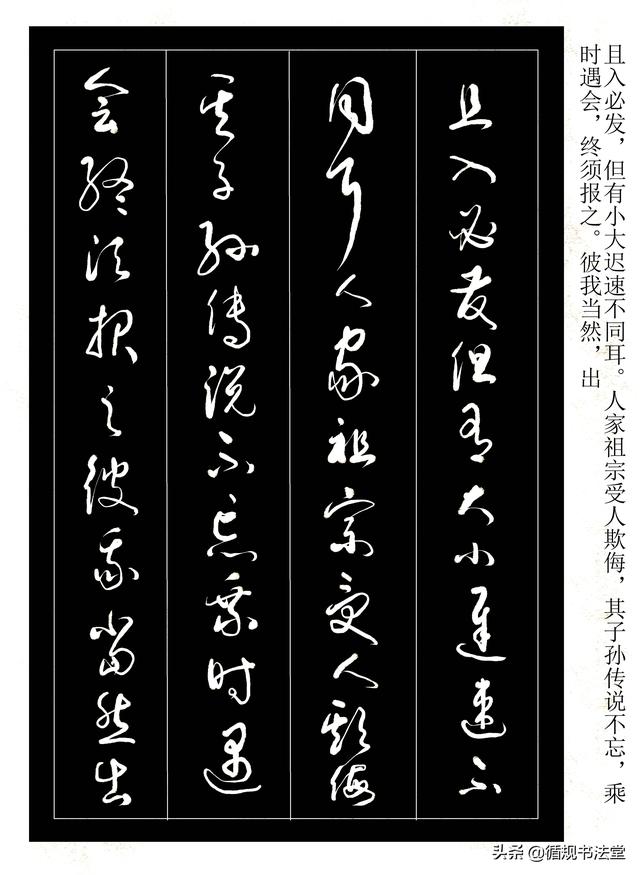 且入必发，但有小大迟速不同耳。人家祖宗受人欺侮，其子孙传说不忘，乘
时遇会，终须报之。彼我当然，出
且入必发但有大小迟速不
同耳人家祖宗受人欺侮
其子孙传说不忘乘时遇
会终须报之彼我当然出
头条 @循规书法堂